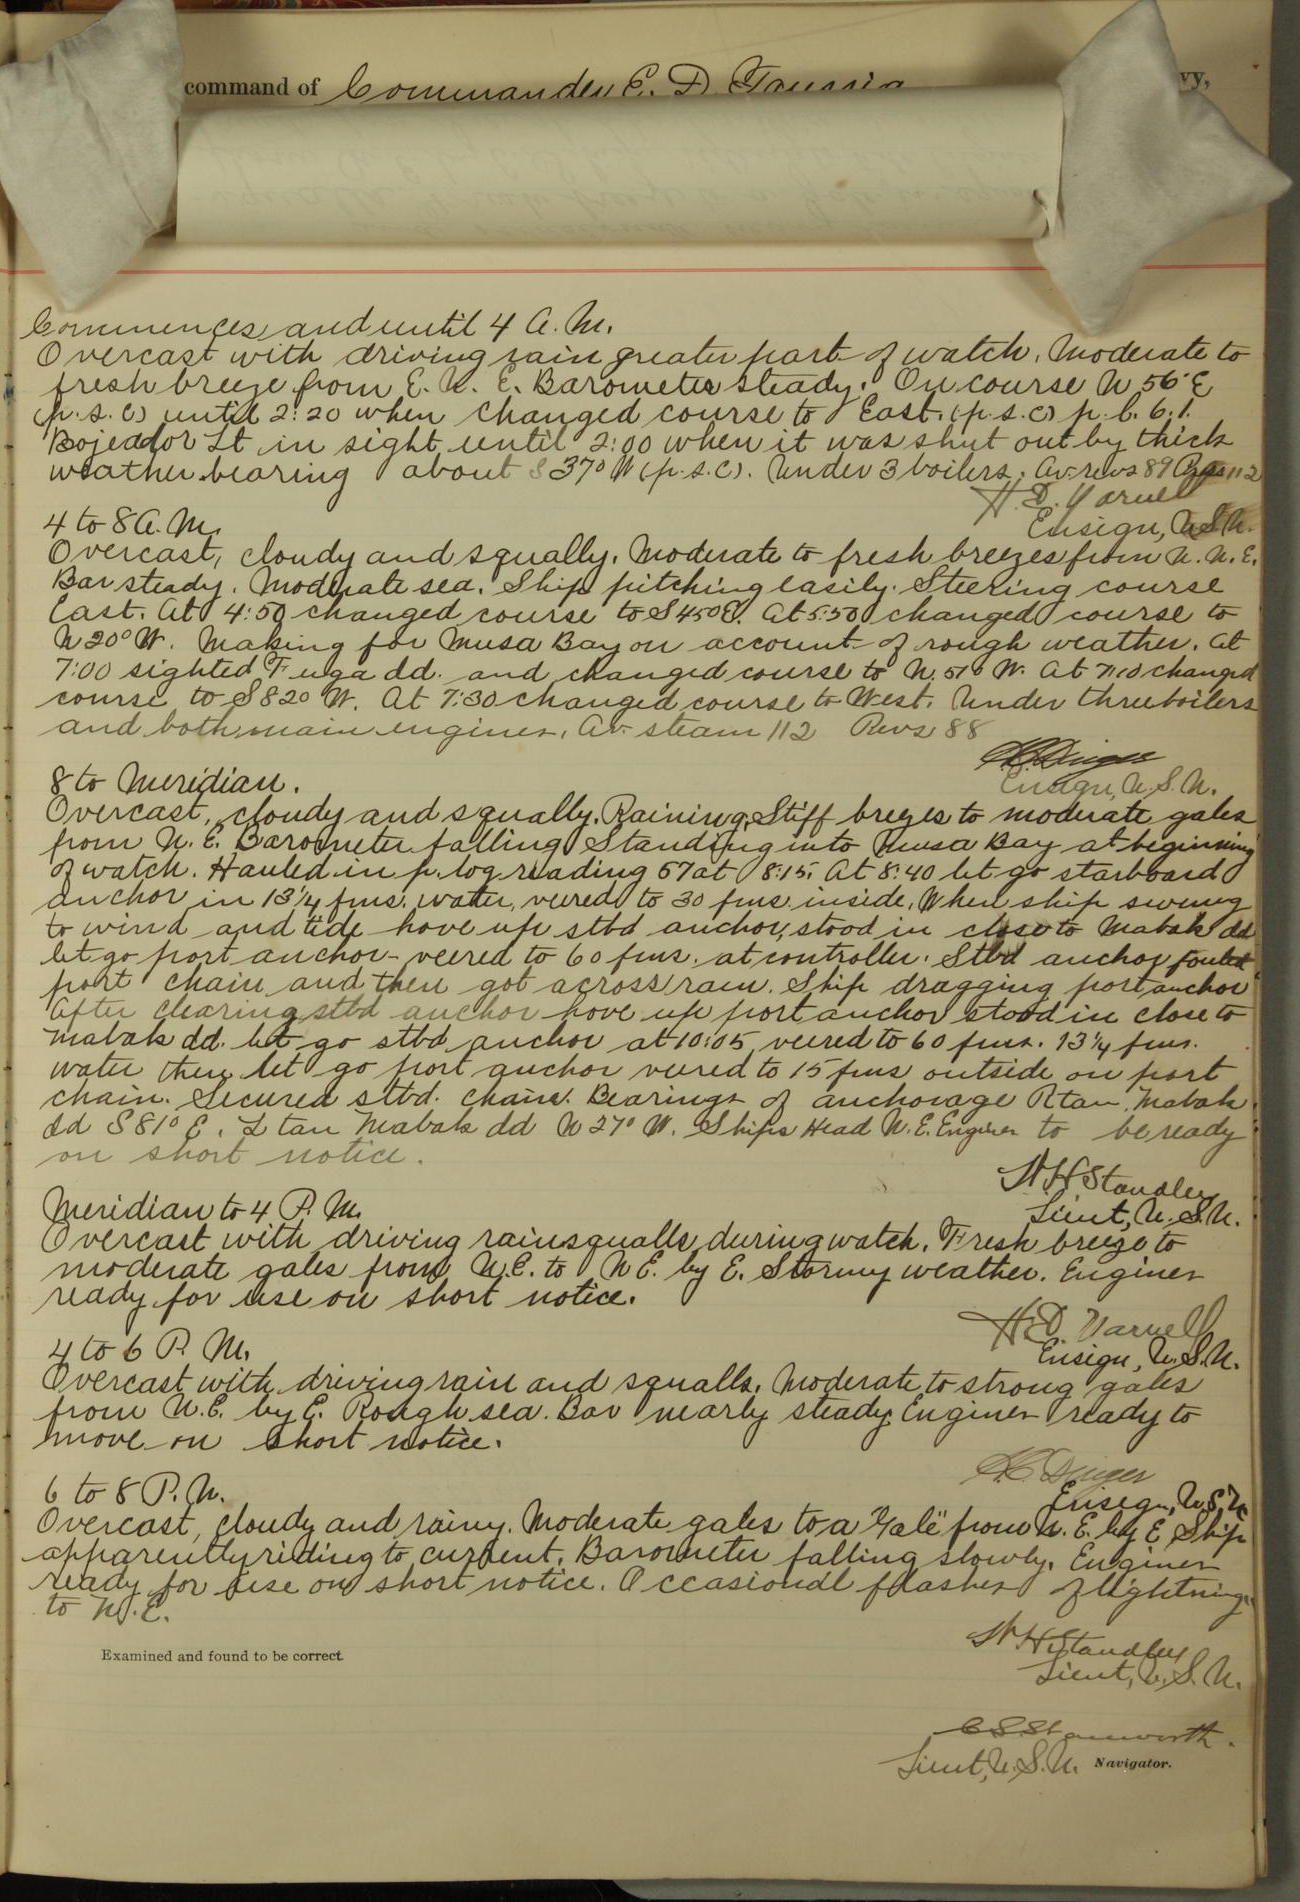 command of Commander E. D. Taussig vy,
Commences and until 4 A. M.
Overcast with driving rain greater part of watch. Moderate to
fresh breeze from E. N. E. Barometer steady. On course N 56° E
(p. s. c) until 2:20 when changed course to East. (p. s. c) p. l. 6.1.
Bojeador Lt in sight until 2:00 when it was shut out by thick
weather bearing about S 37° W (p. s. c). Under 3 boilers. Av. revs 89 112
H. D. Yarnell
Ensign, U.S.N.
4 to 8 A. M.
Overcast, cloudy and squally. Moderate to fresh breezes from N. N. E.
Bar steady. Moderate sea. Ship pitching easily. Steering course
East. At 4:50 changed course to S 45° E. At 5:50 changed course to
N 20° W. Making for Musa Bay on account of rough weather. At
7:00 sighted Fuga dd. and changed course to N. 51° W. At 7:10 changed
course to S 82° W. At 7:30 changed course to West. Under three boilers
and both main engines. Av. steam 112 Revs 88
H. C. Dinger
Ensign, U. S. N.
8 to Meridian.
Overcast, cloudy and squally. Raining. Stiff breezes to moderate gales
from N. E. Barometer falling Standing into Musa Bay at beginning
of watch. Hauled in p. log reading 67 at 8:15. At 8:40 let go starboard
anchor in 13 1/4 fms. water, veered to 30 fms. inside. When ship swung
to wind and tide hove up stbd anchor, stood in close to Mabak dd
let go port anchor - veered to 60 fms. at controller. Stbd anchor fouled
port chain and then got across ram. Ship dragging port anchor
After clearing stbd anchor hove up port anchor stood in close to
Mabak dd. let go stbd anchor at 10:05, veered to 60 fms. 13 1/4 fms.
water then let go port anchor veered to 15 fms outside on port
chain. Secured stbd. chain. Bearings of anchorage Rtan. Mabak
dd S 81° E. L tan Mabak dd N 27° W. Ships Head N. E. Engines to be ready
on short notice.
W H Standley
Lieut, U. S. N.
Meridian to 4 P. M.
Overcast with driving rain squalls during watch. Fresh breeze to
moderate gales from N. E. to N E. by E. Stormy weather. Engines
ready for use on short notice.
H. D. Yarnell
Ensign, U. S. N.
4 to 6 P. M.
Overcast with driving rain and squalls. Moderate to strong gales
from N. E. by E. Rough sea. Bar nearly steady. Engines ready to
move on short notice.
H. C. Dinger
Ensign, U. S. N
6 to 8 P. M.
Overcast, cloudy and rainy. Moderate gales to a "Gale" from N. E. by E. Ship
apparently riding to current. Barometer falling slowly. Engines
ready for use on short notice. Occasional flashes of lightning
to N. E.
W H Standley
Lieut, U. S. N.
Examined and found to be correct.
C S Stanworth.
Lieut, U. S. N. Navigator.